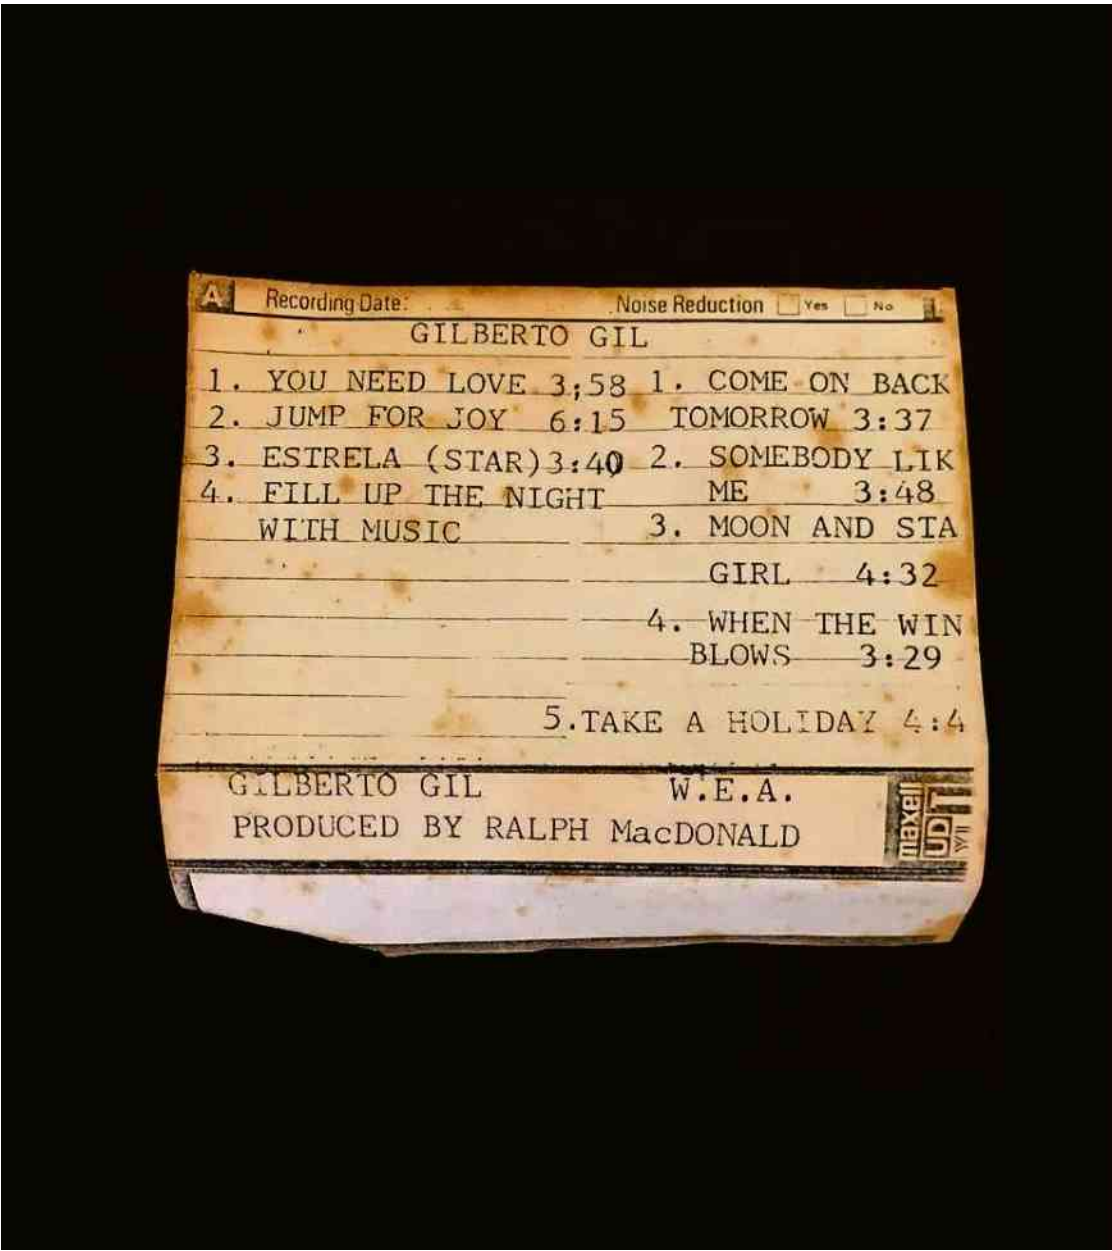 A Recording Date: Noise Reduction Yes No
GILBERTO GIL
1. YOU NEED LOVE 3;58
2. JUMP FOR JOY 6:15
3. ESTRELA (STAR)3:40
4. FILL UP THE NIGHT
WITH MUSIC
1. COME ON BACK
TOMORROW 3:37
2. SOMEBODY LIK
ME 3:48
3. MOON AND STA
GIRL 4:32
4. WHEN THE WIN
BLOWS 3:29
5.TAKE A HOLIDAY 4:4
GILBERTO GIL W.E.A.
PRODUCED BY RALPH MacDONALD
maxell
UD II